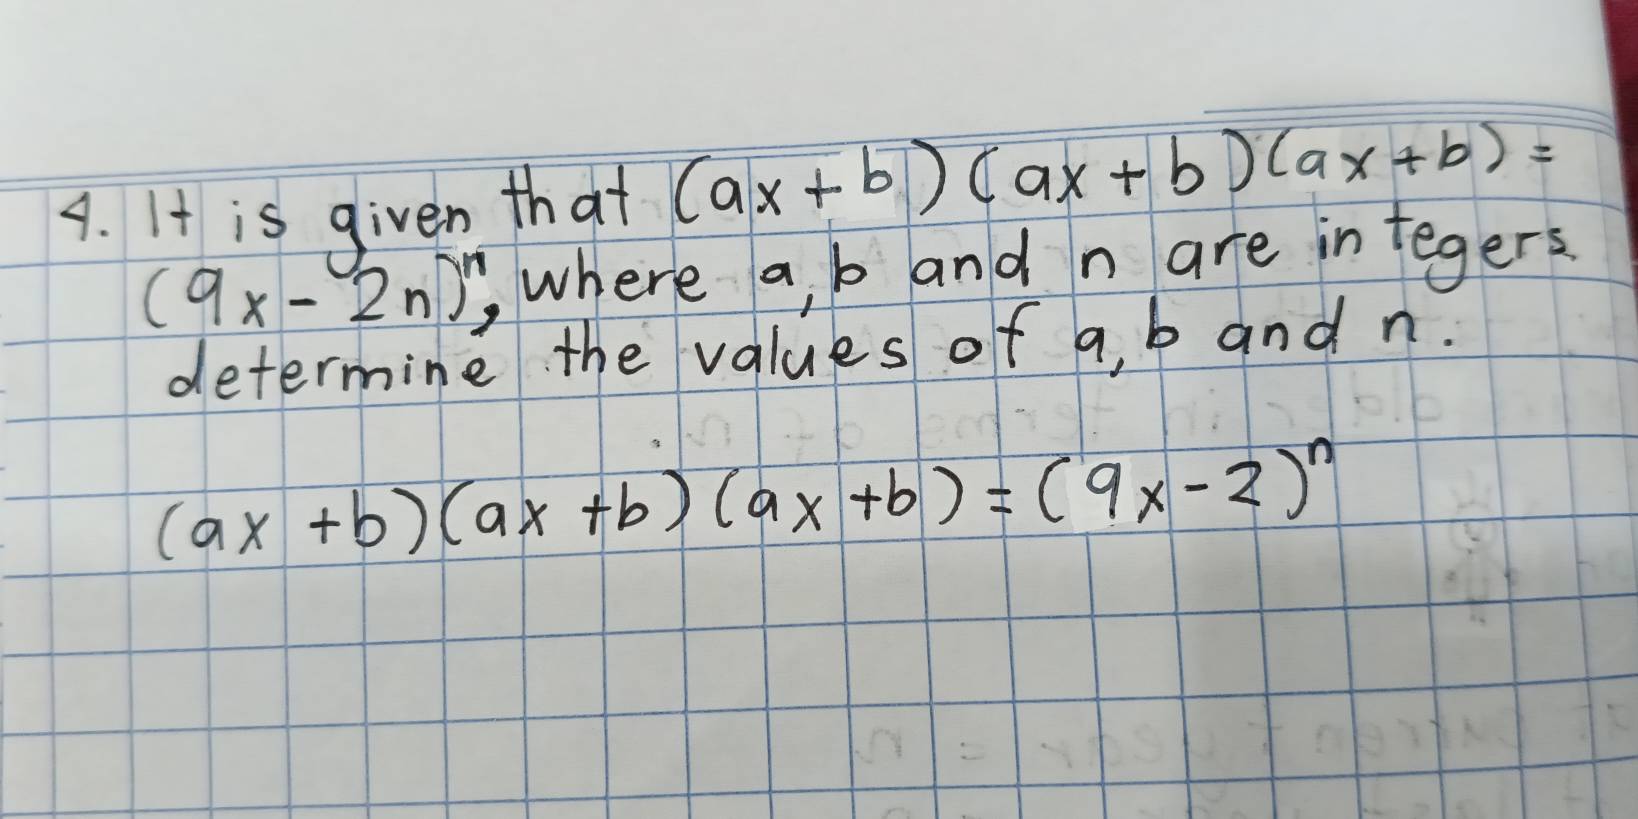 4. It is given that (ax + b) (ax + b) (ax + b) =
(9x - 2n)ⁿ, where a, b and n are integers
determine the values of a, b and n.
(ax + b) (ax + b) (ax + b) = (9x - 2)ⁿ